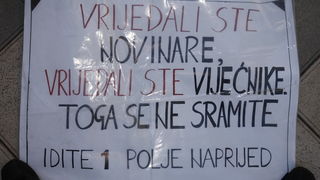 VRIJEĐALI STE
NOVINARE,
VRIJEĐALI STE VIJEĆNIKE.
TOGA SE NE SRAMITE
IDITE 1 POLJE NAPRIJED